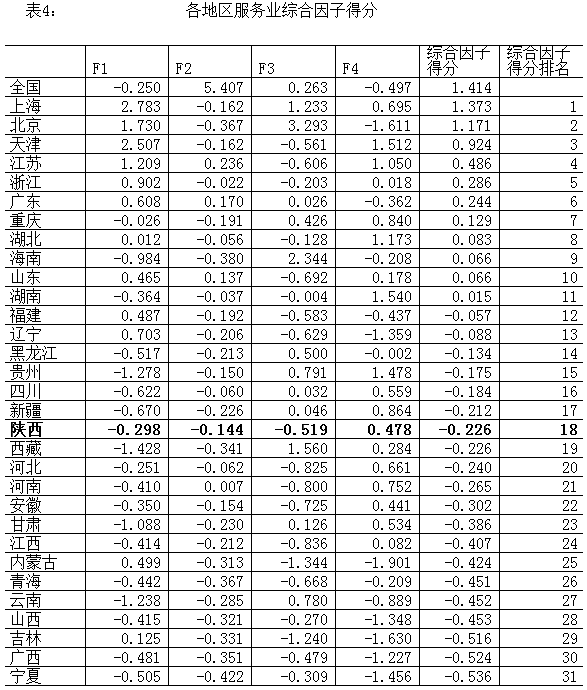 表4: 各地区服务业综合因子得分
F1 F2 F3 F4 综合因子得分 综合因子得分排名
全国 -0.250 5.407 0.263 -0.497 1.414
上海 2.783 -0.162 1.233 0.695 1.373 1
北京 1.730 -0.367 3.293 -1.611 1.171 2
天津 2.507 -0.162 -0.561 1.512 0.924 3
江苏 1.209 0.236 -0.606 1.050 0.486 4
浙江 0.902 -0.022 -0.203 0.018 0.286 5
广东 0.608 0.170 0.026 -0.362 0.244 6
重庆 -0.026 -0.191 0.426 0.840 0.129 7
湖北 0.012 -0.056 -0.128 1.173 0.083 8
海南 -0.984 -0.380 2.344 -0.208 0.066 9
山东 0.465 0.137 -0.692 0.178 0.066 10
湖南 -0.364 -0.037 -0.004 1.540 0.015 11
福建 0.487 -0.192 -0.583 -0.437 -0.057 12
辽宁 0.703 -0.206 -0.629 -1.359 -0.088 13
黑龙江 -0.517 -0.213 0.500 -0.002 -0.134 14
贵州 -1.278 -0.150 0.791 1.478 -0.175 15
四川 -0.622 -0.060 0.032 0.559 -0.184 16
新疆 -0.670 -0.226 0.046 0.864 -0.212 17
陕西 -0.298 -0.144 -0.519 0.478 -0.226 18
西藏 -1.428 -0.341 1.560 0.284 -0.226 19
河北 -0.251 -0.062 -0.825 0.661 -0.240 20
河南 -0.410 0.007 -0.800 0.752 -0.265 21
安徽 -0.350 -0.154 -0.725 0.441 -0.302 22
甘肃 -1.088 -0.230 0.126 0.534 -0.386 23
江西 -0.414 -0.212 -0.836 0.082 -0.407 24
内蒙古 0.499 -0.313 -1.344 -1.901 -0.424 25
青海 -0.442 -0.367 -0.668 -0.209 -0.451 26
云南 -1.238 -0.285 0.780 -0.889 -0.452 27
山西 -0.415 -0.321 -0.270 -1.348 -0.453 28
吉林 0.125 -0.331 -1.240 -1.630 -0.516 29
广西 -0.481 -0.351 -0.479 -1.227 -0.524 30
宁夏 -0.505 -0.422 -0.309 -1.456 -0.536 31